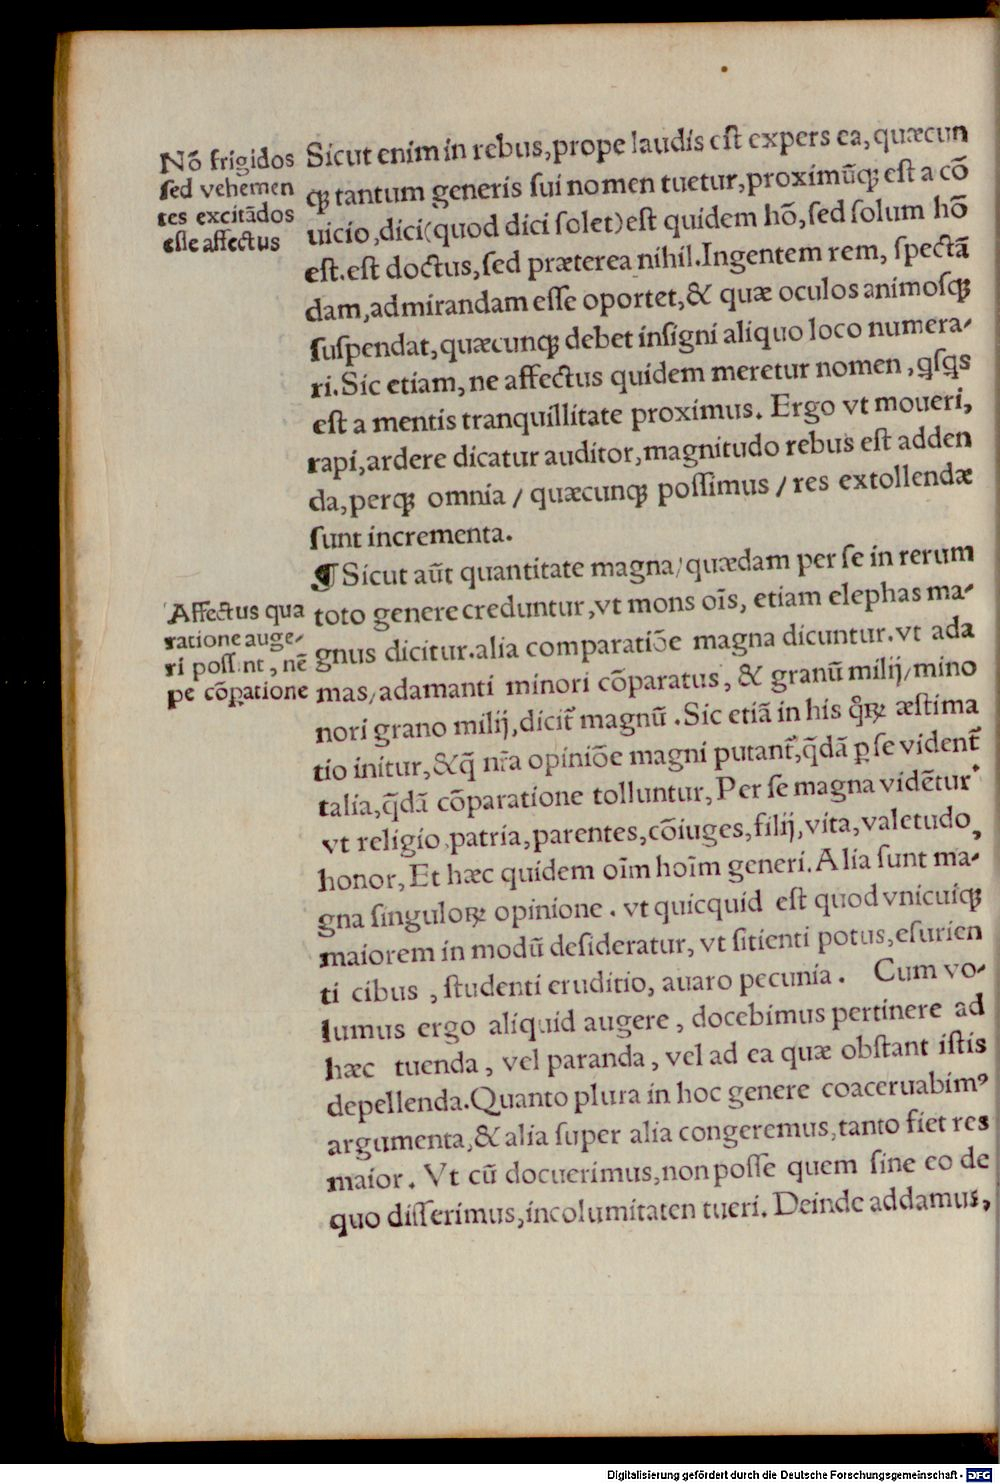 Nō frigidos
sed vehemen
tes excitādos
esse affectus
Sicut enim in rebus, prope laudis est expers ea, quæcun
qꝫ tantum generis sui nomen tuetur, proximūqꝫ est a cō
uicio, dici (quod dici solet) est quidem hō, sed solum hō
est. est doctus, sed præterea nihil. Ingentem rem, spectā
dam, admirandam esse oportet, & quæ oculos animosqꝫ
suspendat, quæcunqꝫ debet insigni aliquo loco numera-
ri. Sic etiam, ne affectus quidem meretur nomen, ꝗsꝗs
est a mentis tranquillitate proximus. Ergo vt moueri,
rapi, ardere dicatur auditor, magnitudo rebus est adden
da, perqꝫ omnia / quæcunqꝫ possimus / res extollendæ
sunt incrementa.
Affectus qua
ratione auge-
ri possint, nē
pe cōꝑatione
¶ Sicut aūt quantitate magna / quædam per se in rerum
toto genere creduntur, vt mons oīs, etiam elephas ma-
gnus dicitur. alia comparatiōe magna dicuntur. vt ada
mas / adamanti minori cōparatus, & granū milij / mino
nori grano milij, dicit᷑ magnū. Sic etiā in his q̄rꝝ æstima
tio initur, & q̄ nr̄a opiniōe magni putant᷑, q̄dā ꝑ se vident᷑
talia, q̄dā cōparatione tolluntur, Per se magna vidētur
vt religio, patria, parentes, cōiuges, filij, vita, valetudo,
honor, Et hæc quidem oīm hoīm generi. Alia sunt ma-
gna singulorꝝ opinione. vt quicquid est quod vnicuiqꝫ
maiorem in modū desideratur, vt sitienti potus, esurien
ti cibus, studenti eruditio, auaro pecunia. Cum vo-
lumus ergo aliquid augere, docebimus pertinere ad
hæc tuenda, vel paranda, vel ad ea quæ obstant istis
depellenda. Quanto plura in hoc genere coaceruabimꝰ
argumenta, & alia super alia congeremus, tanto fiet res
maior. Vt cū docuerimus, non posse quem sine eo de
quo disserimus, incolumitaten tueri. Deinde addamus,
Digitalisierung gefördert durch die Deutsche Forschungsgemeinschaft - DFG